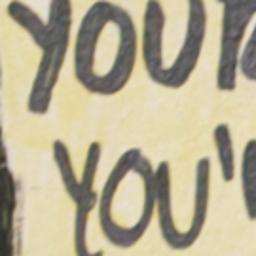 YOU
YOU'